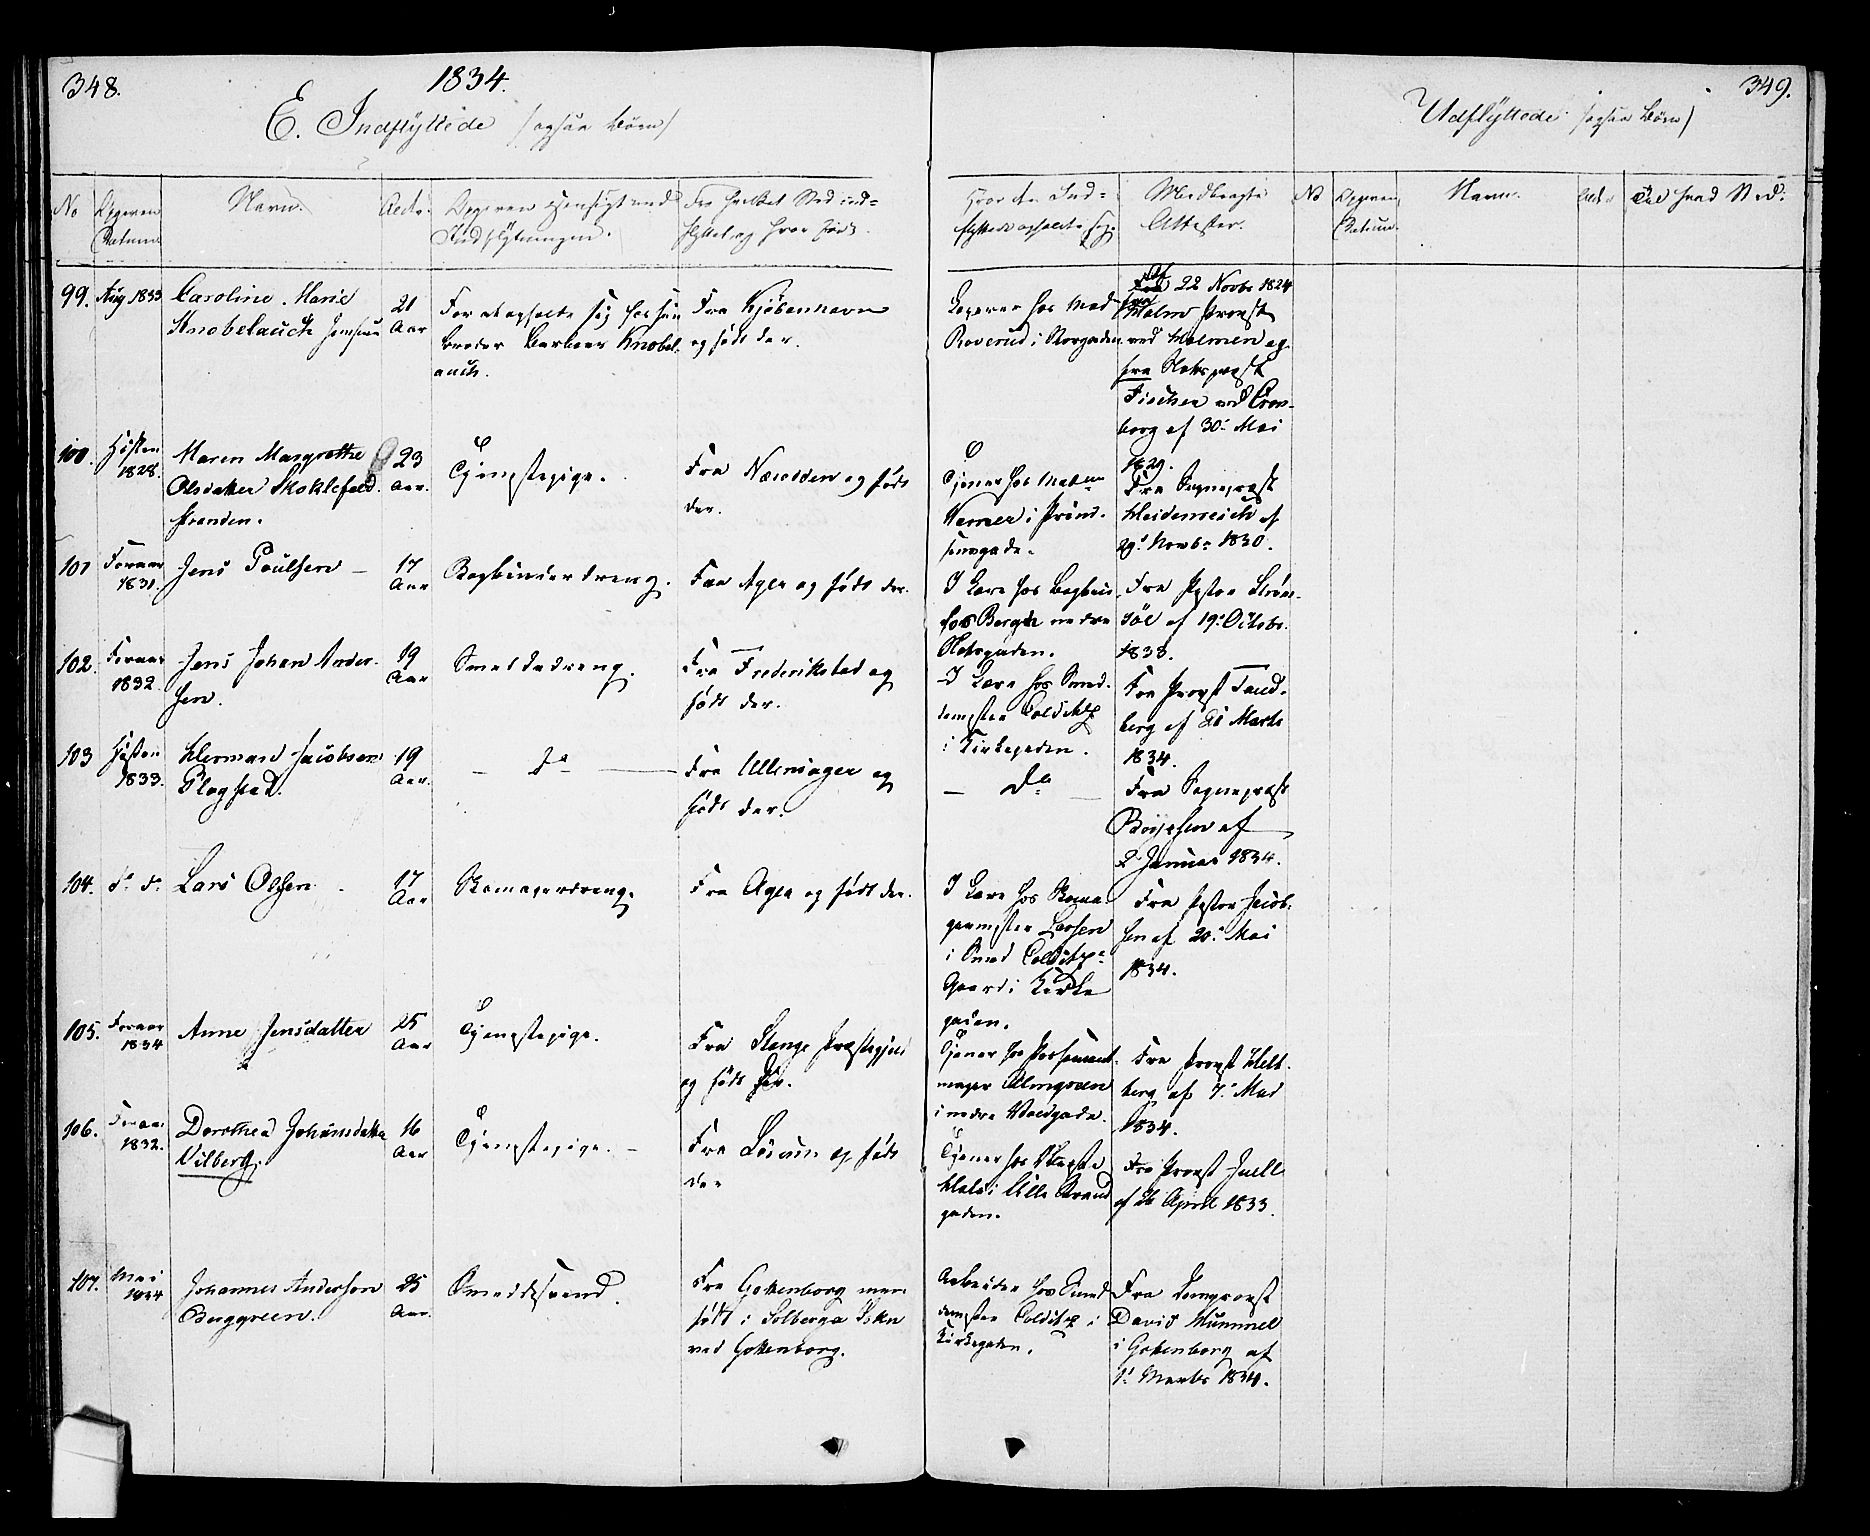 348.
1834.
E. Indflyttede /ogsaa Børn/
No
Opgiven
Datum
Navn.
Aeldr.
Opgiven Hensigt med
Indflytningen.
Fra hvilket Sted ind-
flyttet og hvor født.
Hvor den Ind-
flyttede opholder sig.
Medbragte
Attester.
99.
Aug 1833
Caroline Marie
Knobelauch
21
Aar
For at opholde sig hos sin
broder Barbeer Knobel-
auch.
Fra Kjöbenhavn
og født der.
Logerer hos Mad
Roverud i Storgaden
Af 22 Novbr 1824
fra
Holm Provst
ved Holmen og
fra Slotspræst
Fischer ved Cron-
borg af 30. Mai
1829.
100.
Høsten
1828.
Maren Margrethe
Olsdatter Skoklefald-
stranden.
23
Aar.
Tjenestepige.
Fra Næsodden og født
der.
Tjener hos Madm
Werner i Prind-
sensgade.
Fra Sognepræst
Heidenreich af
29. Novbr 1830.
101
Foraar
1831.
Jens Poulsen –
17
Aar
Bogbinderdreng.
Fra Ager og født der.
I Lære hos Bogbin-
Bergh nedre
Slotsgaden.
Fra Pastor Strøm-
söe af 19. Octobr.
1833.
102.
Foraar
1832.
Jens Johan Ander-
sen.
19
Aar
Smededreng.
Fra Frederikstad og
født der.
I Lære hos Smed-
demester Colditz
i Kirkegaden.
Fra Provst Tand-
berg af Marts
1834.
103
Høsten
1833.
Herman Jacobsen
Plogstad.
19
Aar.
– Do –
Fra Ullensager og
født der.
– Do –
Fra Sognepræst
Böyesen af
2 Januar 1834.
104.
d. d.
Lars Olsen
17
Aar
Skomagerdreng.
Fra Ager og født der.
I Lære hos Skoma-
germester Larsen
i Smed Colditz
Gaard i Kirke
gaden.
Fra Pastor Jacob-
sen af 20. Mai
1834.
105.
Foraar
1834
Anne Jensdatter
25
Aar
Tjenestepige.
Fra Stange Præstegjeld
og født der.
Tjener hos Possement-
mager Almgreen
i nedre Voldgade.
Fra Provst Helt-
berg af 7. Mai
1834.
106.
Foraar
1832.
Dorothea Johansdatter
Vilberg.
16
Aar
Tjenestepige. –
Fra og født
der
Tjener hos
i Lille Strand
gaden.
Fra Provst Juell
af 26 April 1833.
107.
Mai
1834
Johannes Anderson
Berggreen.
25
Aar.
Smeddesvend.
Fra Gothenborg men
født i Solberga Sokn
ved Gothenborg.
Arbeider hos Smed
demester Colditz i
Kirkegaden.
Fra Domprovst
David Hummel
i Gothenborg af
1. Marts 1834.
349.
Udflyttede /ogsaa Börn/
No
Opgiven
Datum.
Navn.
Aeldr
Til hvad Sted.